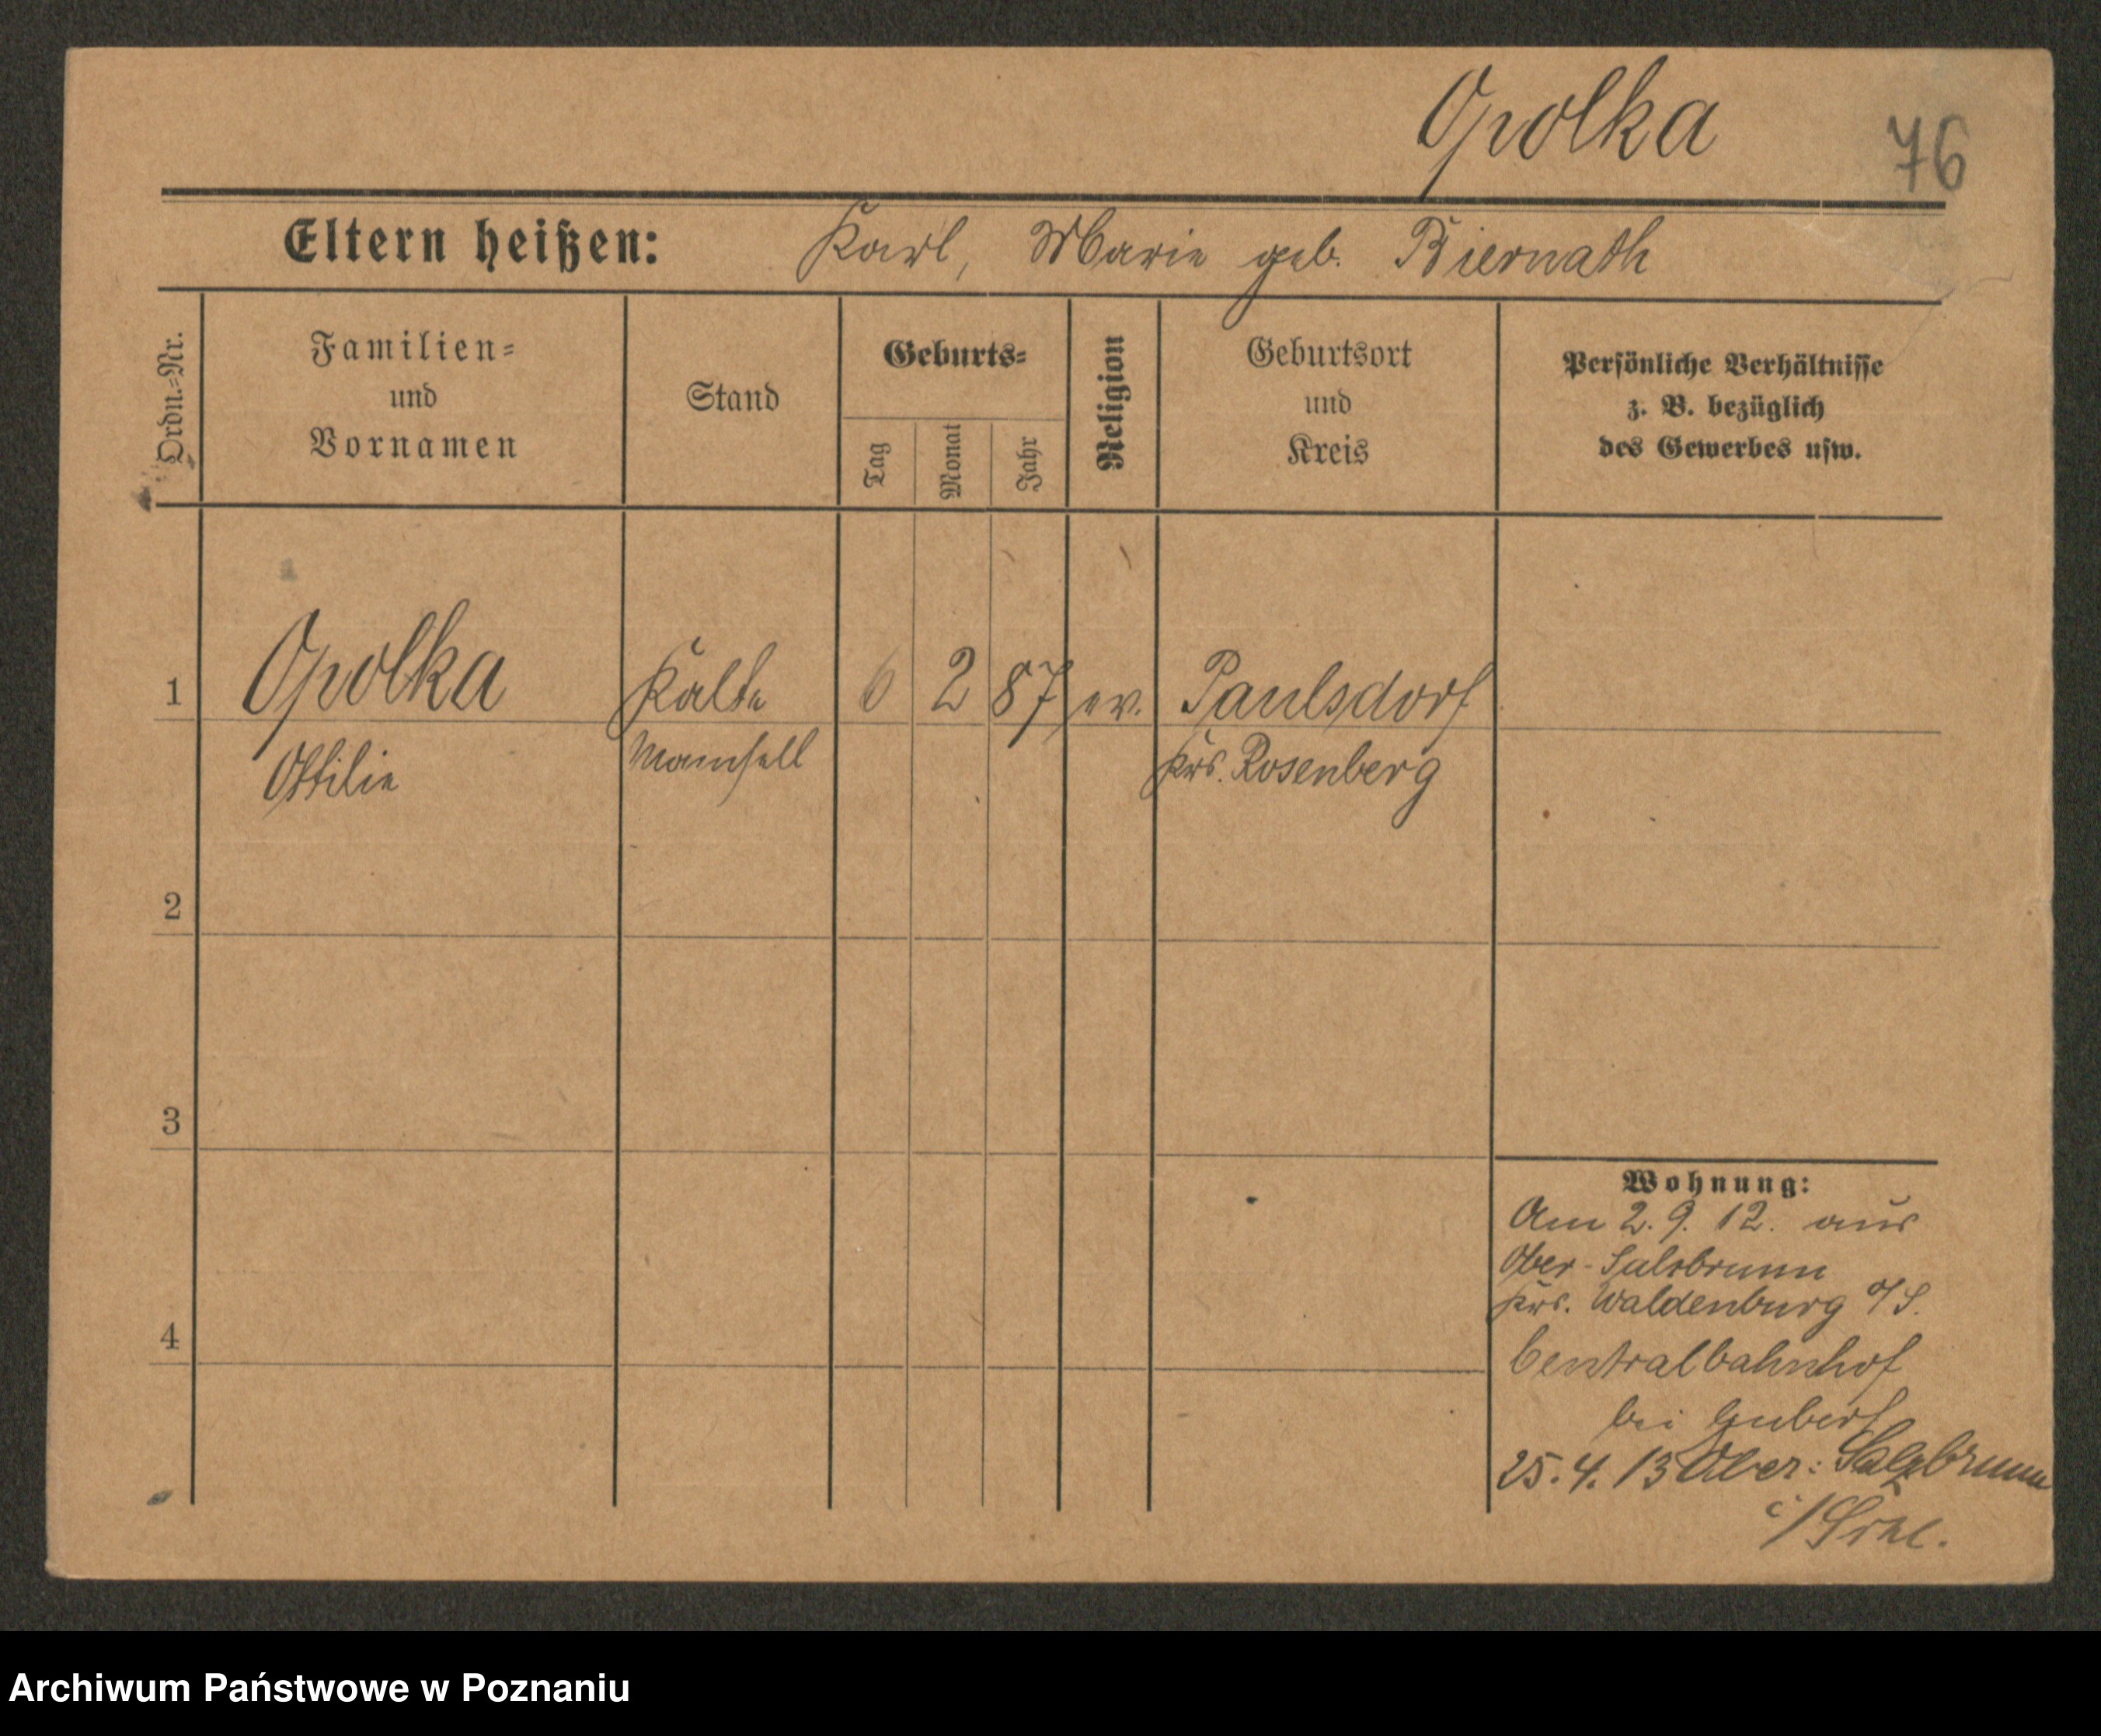 Opolka
76
Eltern heißen: Karl, Marie geb. Biernath
Ordn.-Nr.
Familien-
und
Vornamen
Stand
Geburts-
Tag
Monat
Jahr
Religion
Geburtsort
und
Kreis
Persönliche Verhältnisse
z. B. bezüglich
des Gewerbes usw.
1 Opolka Kalte 6 2 87 ev. Paulsdorf
Ottilie Mamsell Krs. Rosenberg
2
3
Wohnung:
Am 2. 9. 12. aus
Ober-Salzbrunn
Krs. Waldenburg
4
Centralbahnhof
bei
25. 4. 13 Ober: Salzbrunn
i/Schl.
Archiwum Państwowe w Poznaniu